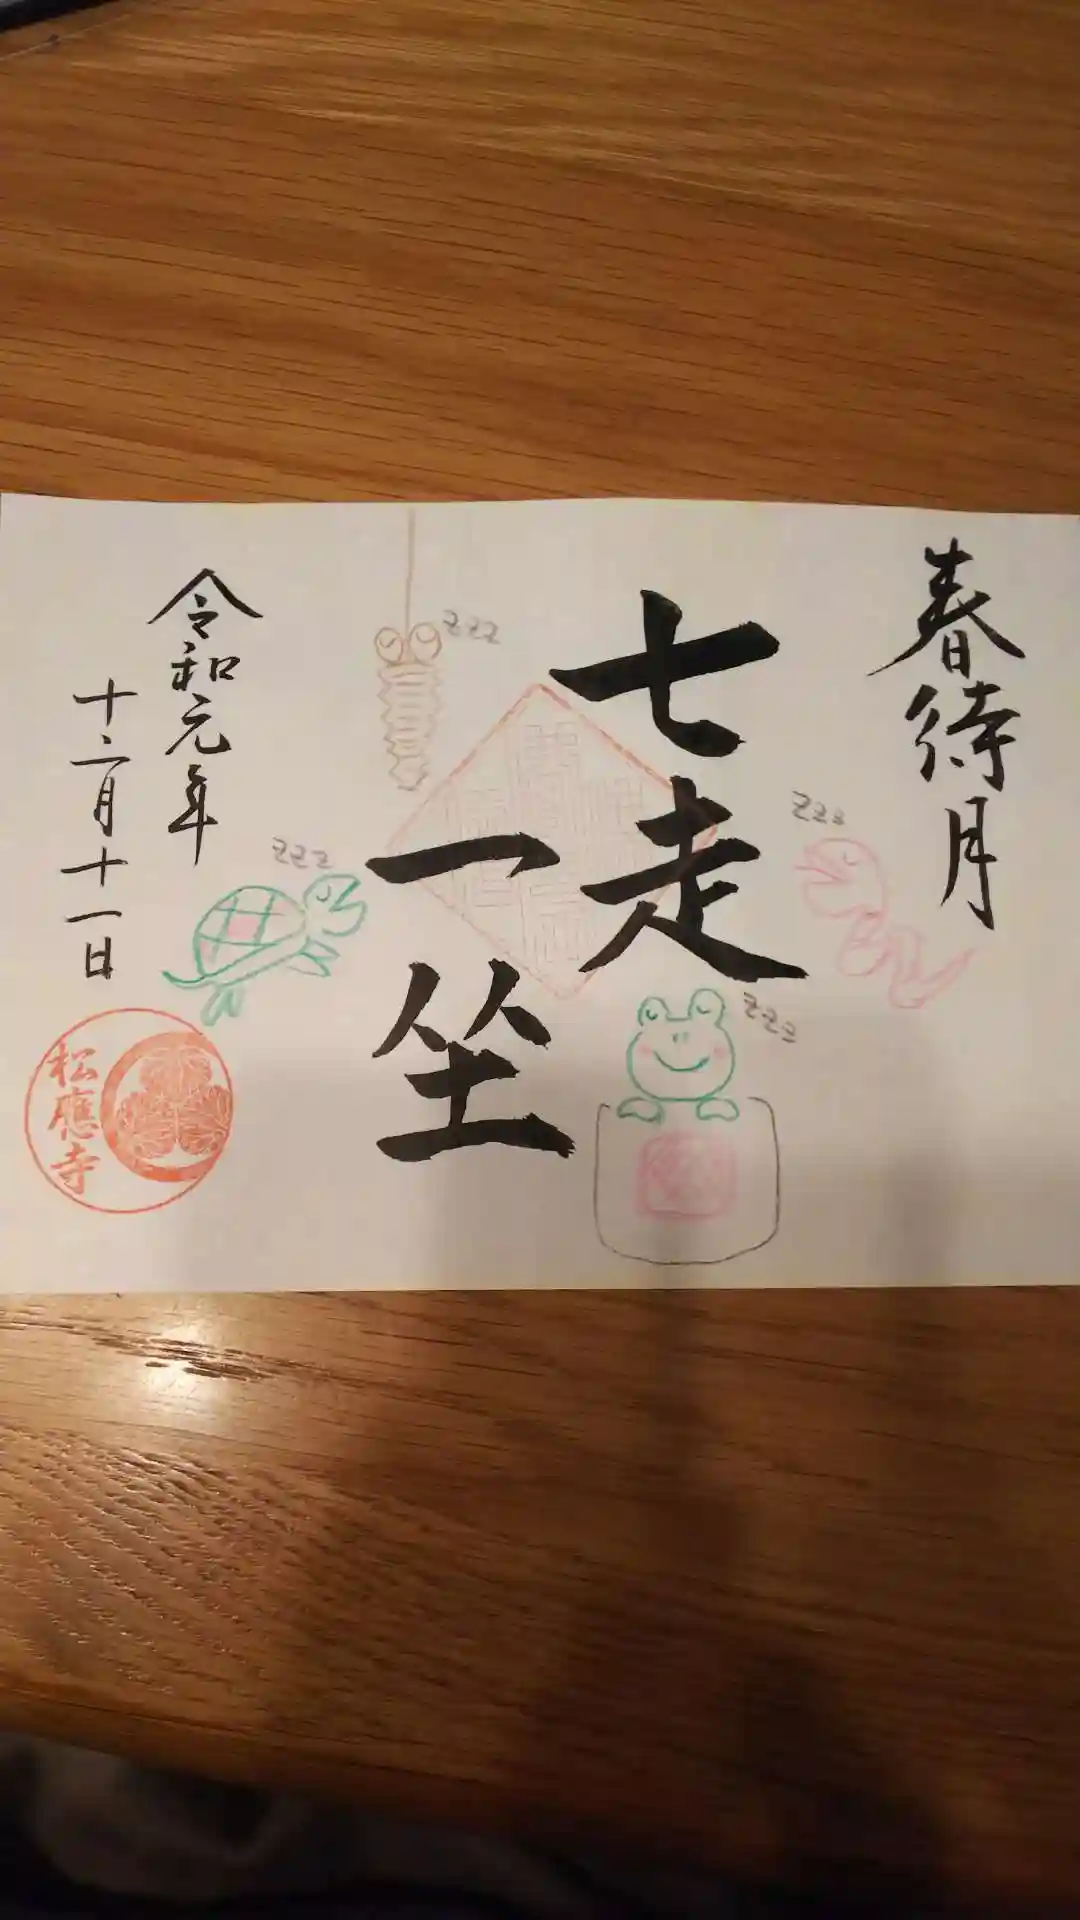 春待月
七走
一坐
zzz
zzz
zzz
zzz
令和元年
十二月十一日
松應寺